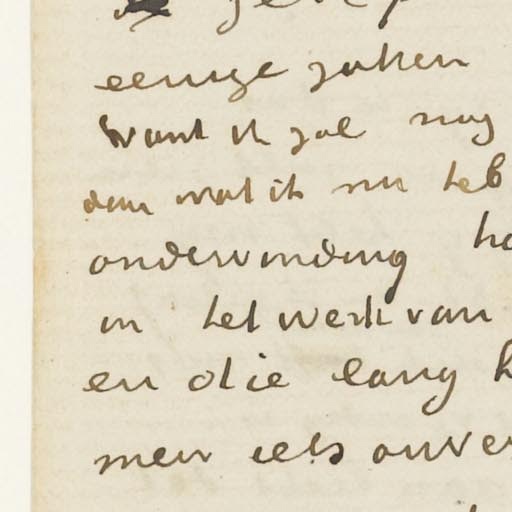 eenige zaken
Want ik zal nog
dan wat ik nu heb
ondervinding
in het werk van
en die lang
men iets